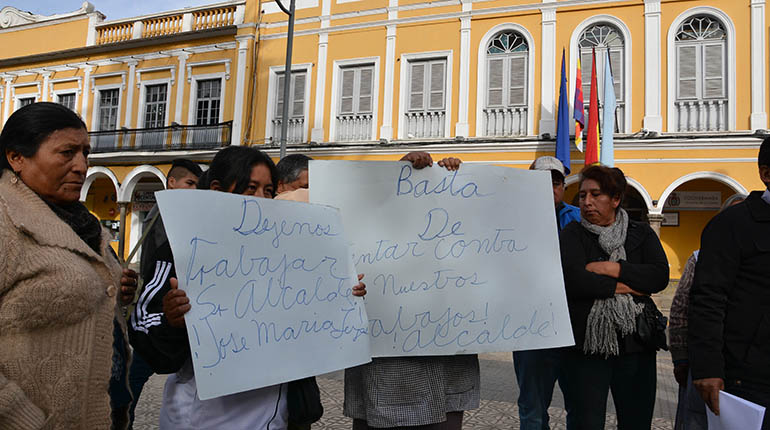 Dejenos
Trabajar
Sr Alcalde
¡Jose Maria
Basta
De
entar contra
Nuestros
abajos!
¡Alcalde!
COCHABAMBA